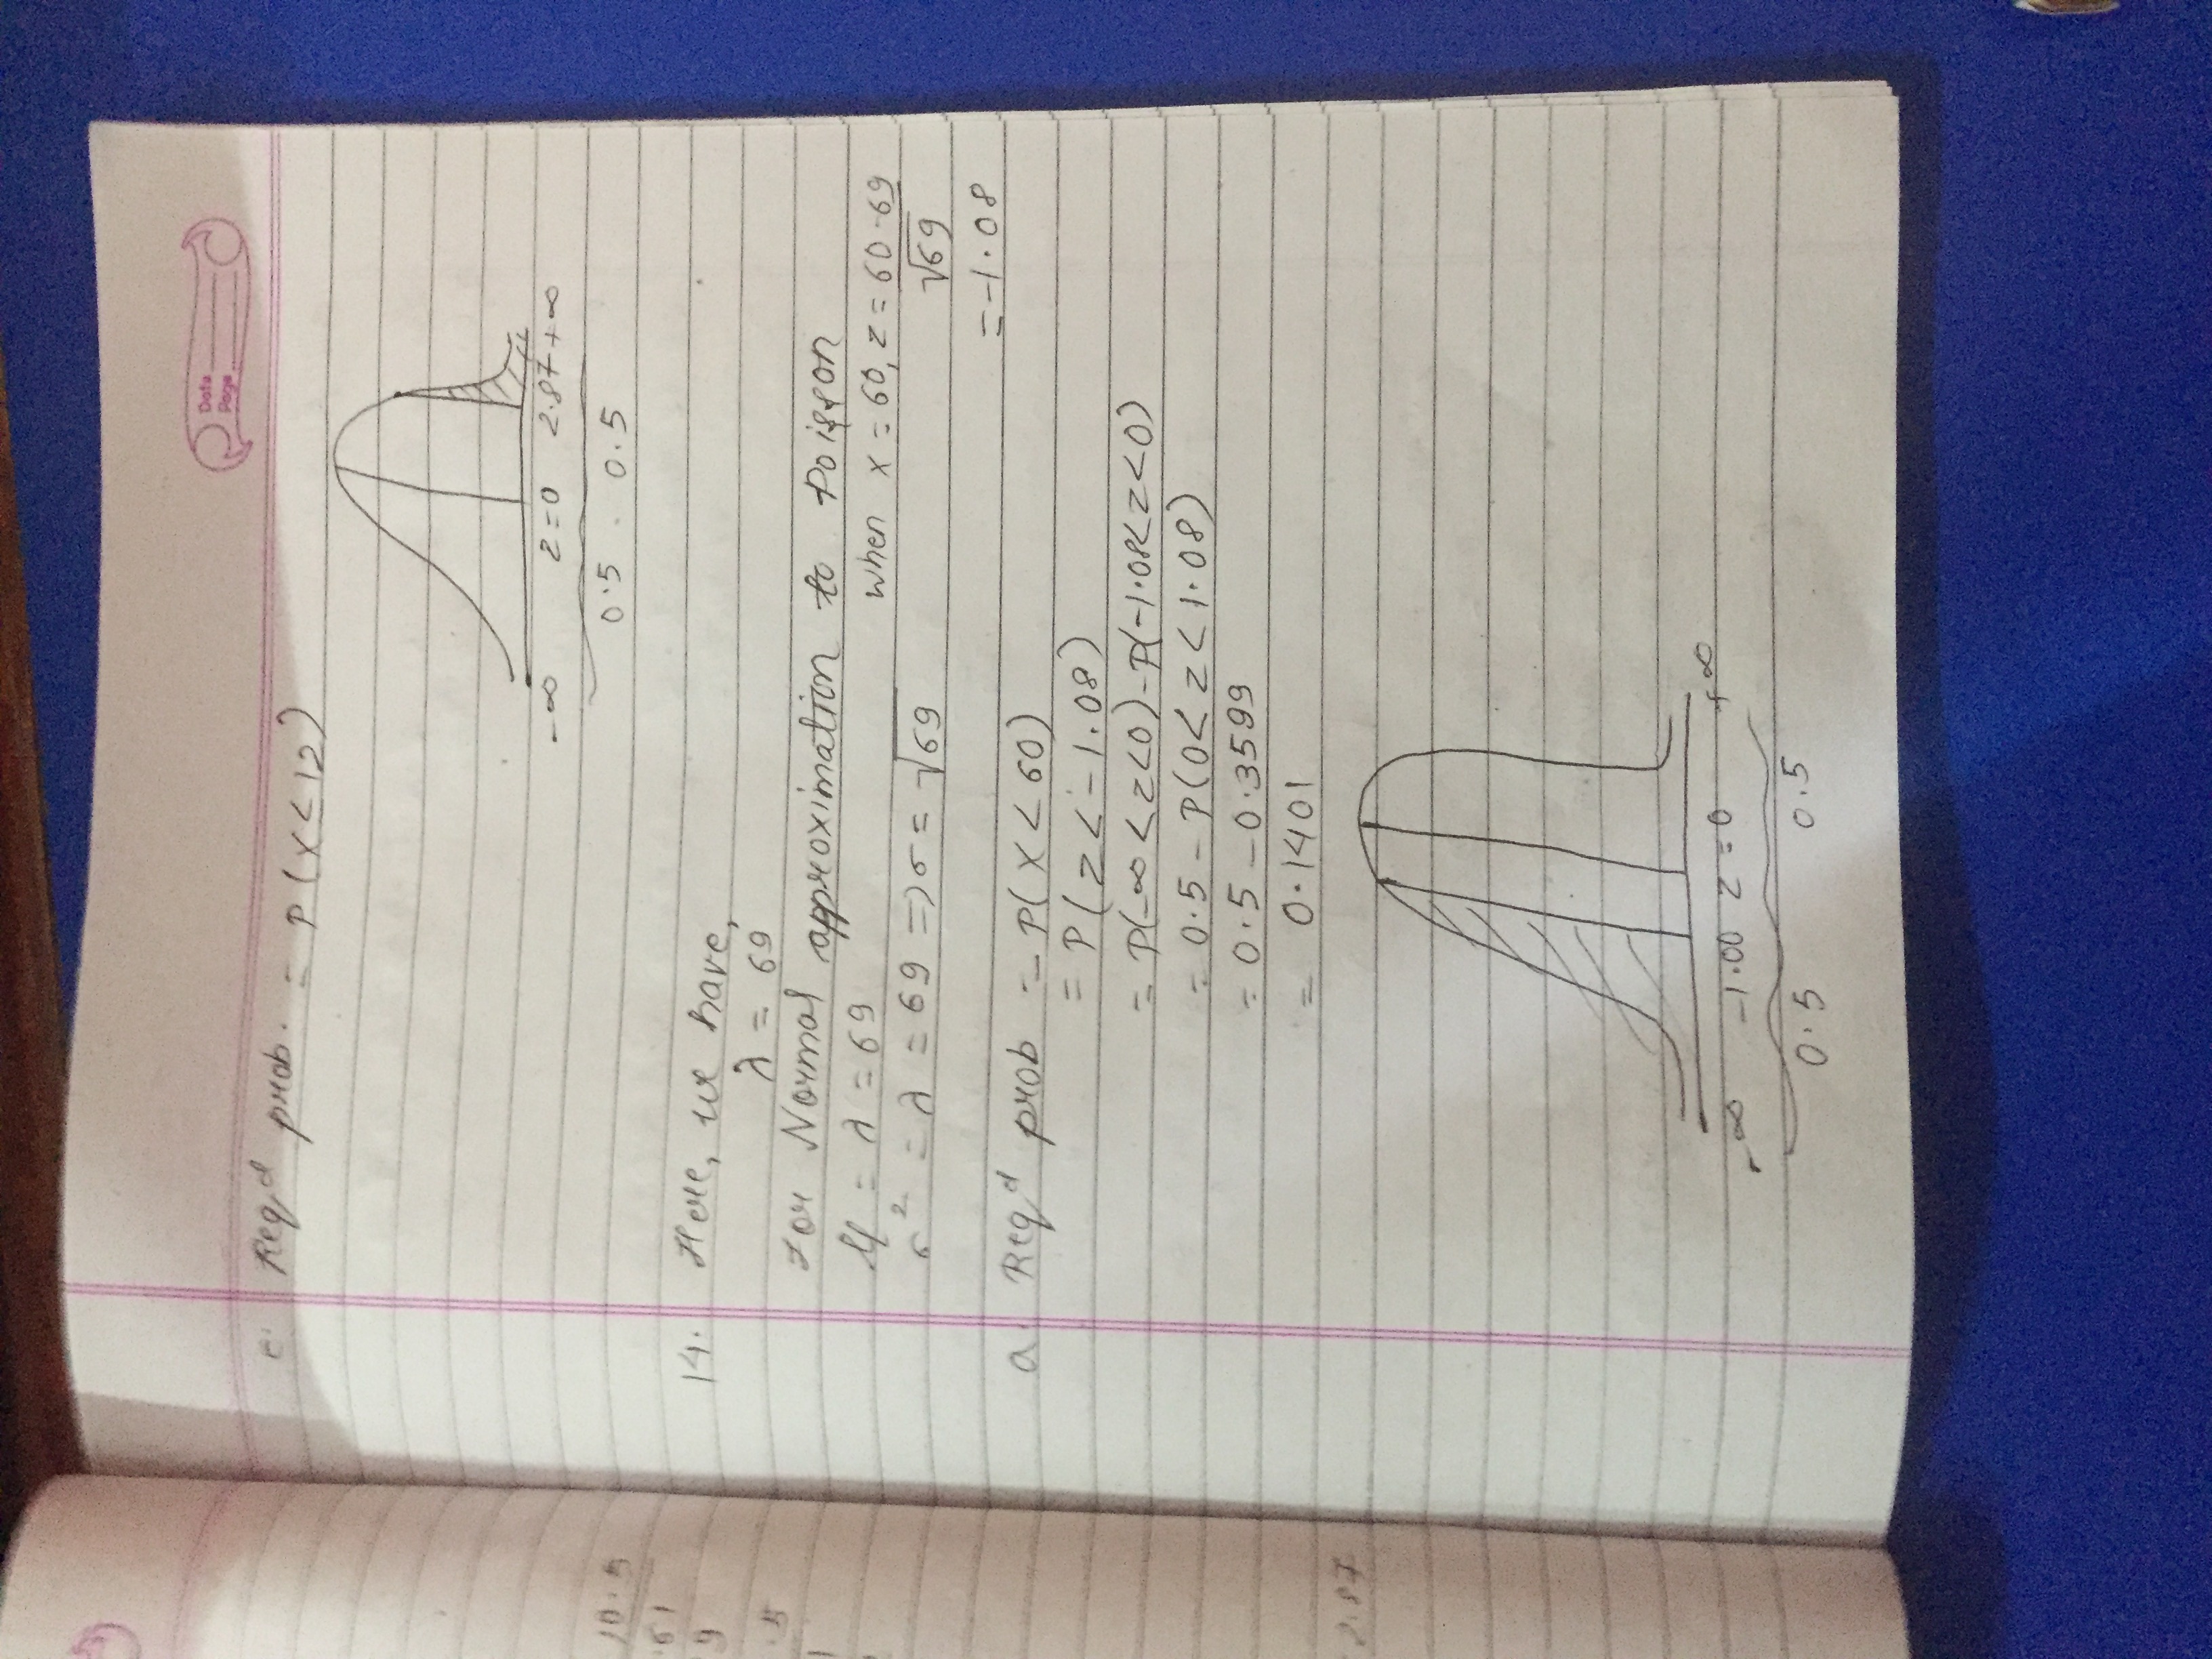 Date
Page
c. Req.d prob. = P(X<12)
-∞ z=0 2.87 +∞
0.5 0.5
14. Here, we have,
λ = 69
For Normal approximation to Poisson
μ = λ = 69
σ² = λ = 69 => σ = √69
when x = 60, z = 60-69
√69
= -1.08
a. Req.d prob = P(X<60)
= P(z<-1.08)
= P(-∞<z<0)-P(-1.08<z<0)
= 0.5 - P(0<z<1.08)
= 0.5 - 0.3599
= 0.1401
-∞ -1.00 z=0 +∞
0.5 0.5
10.5
.61
9
.5
1
2.87